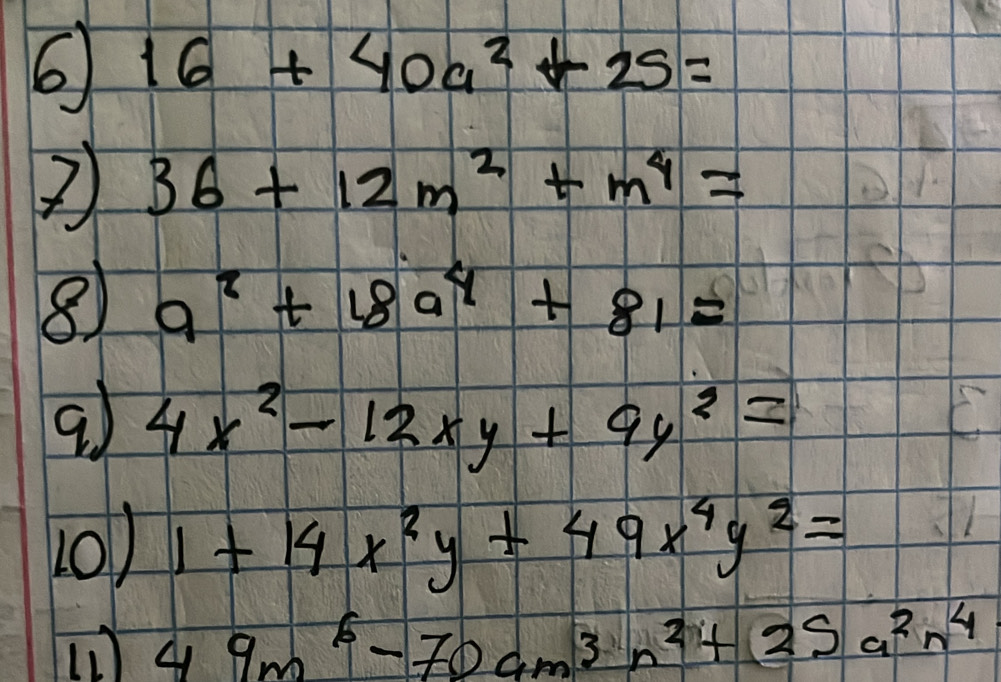 6) 16 + 40a² + 25 =
7) 36 + 12m² + m⁴ =
8) a² + 18a⁴ + 81 =
9) 4x² - 12xy + 9y² =
10) 1 + 14x²y + 49x⁴y² =
11) 49m⁶ - 70am³n² + 25a²n⁴